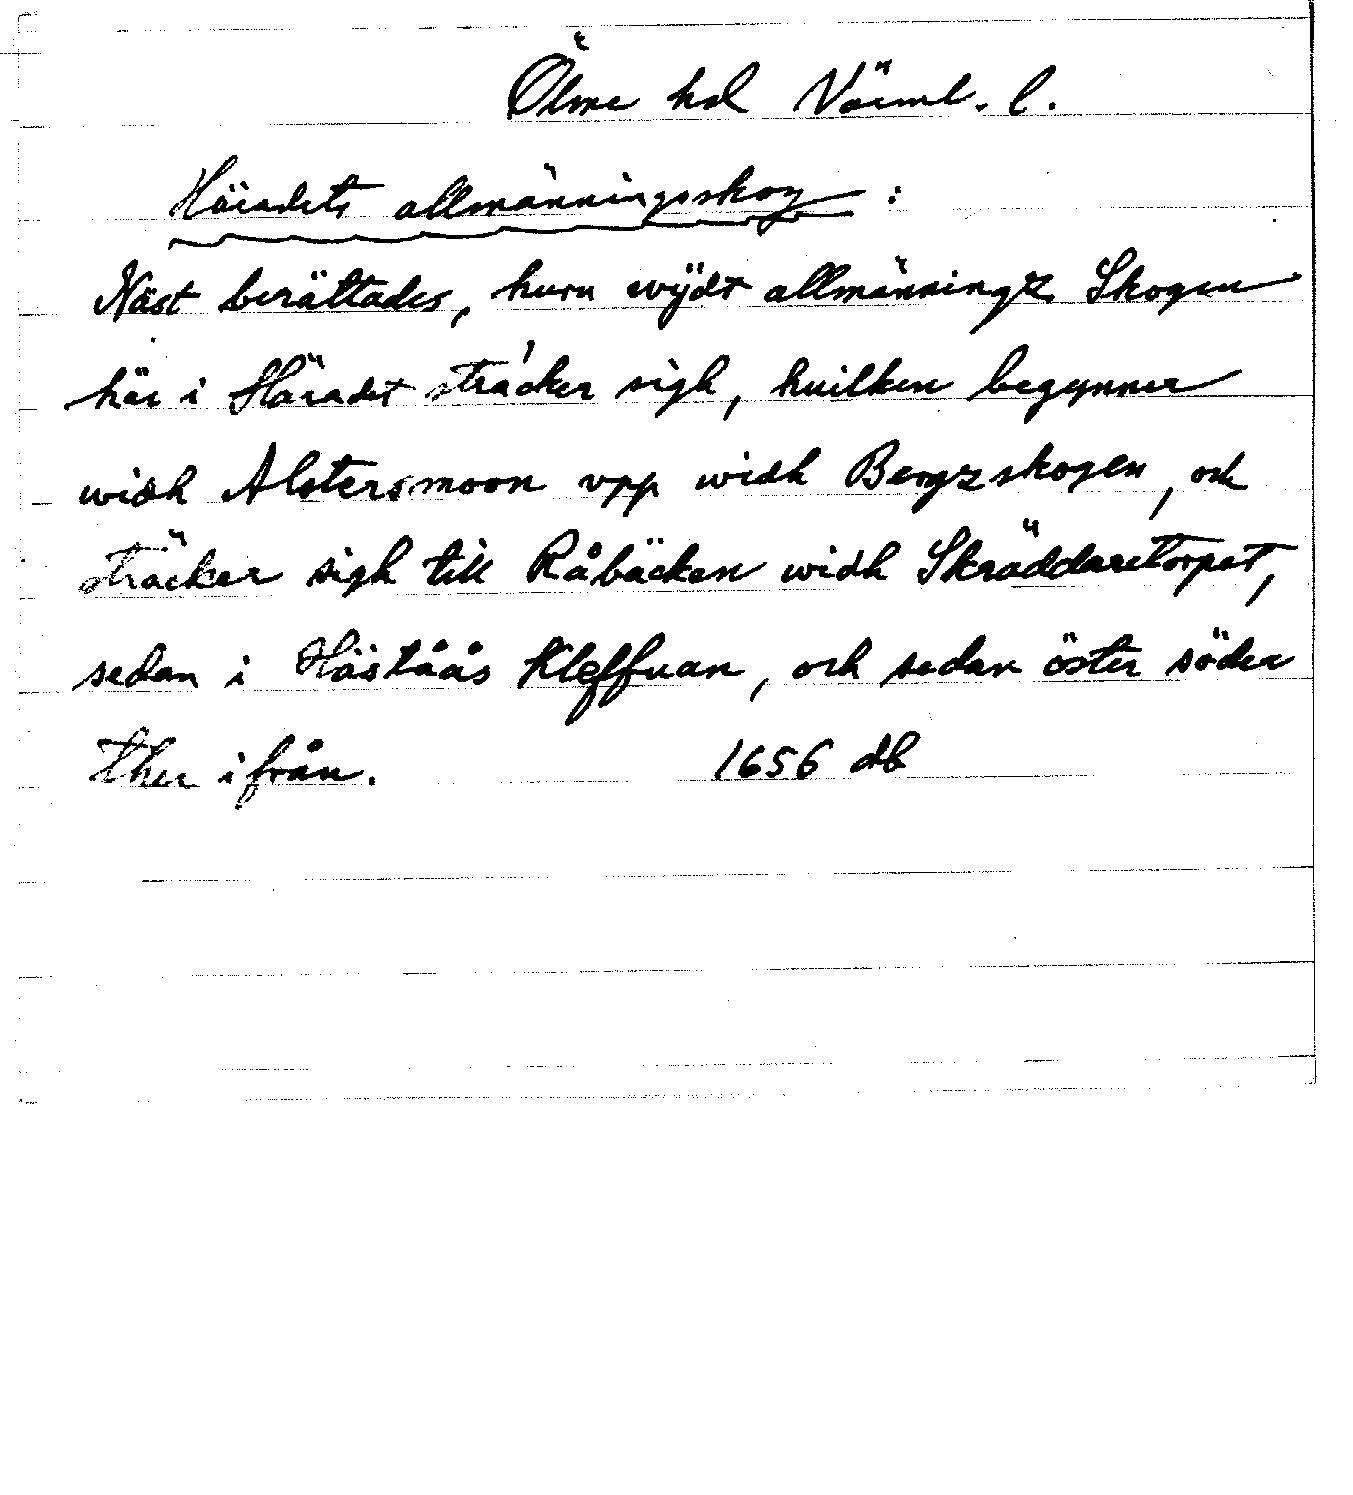 Ölme hd Värml. l.
Häradets allmänningsskog :
Näst berättades, huru wÿdt allmänningz Skogen
här i Häradet sträcker sigh, huilken begynner
widh Alstersmoon vpp widh Bergzskogen, och
sträcker sigh till Råbäcken widh Skräddaretorpet,
sedan i Häståås Kleffuan, och sedan öster söder
ther ifrån. 1656 db